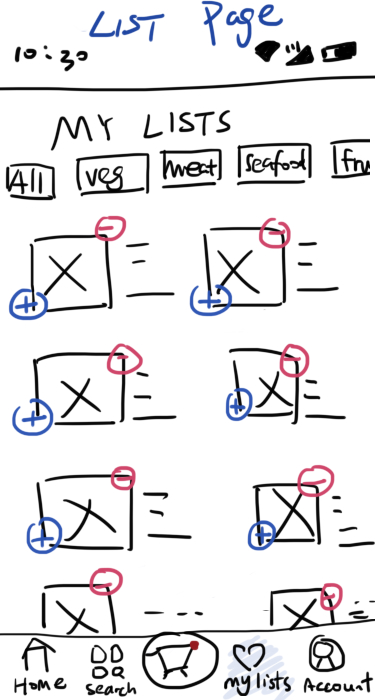 LIST Page
10:30
MY LISTS
All veg meat Seafood fru
Home Search my lists Account